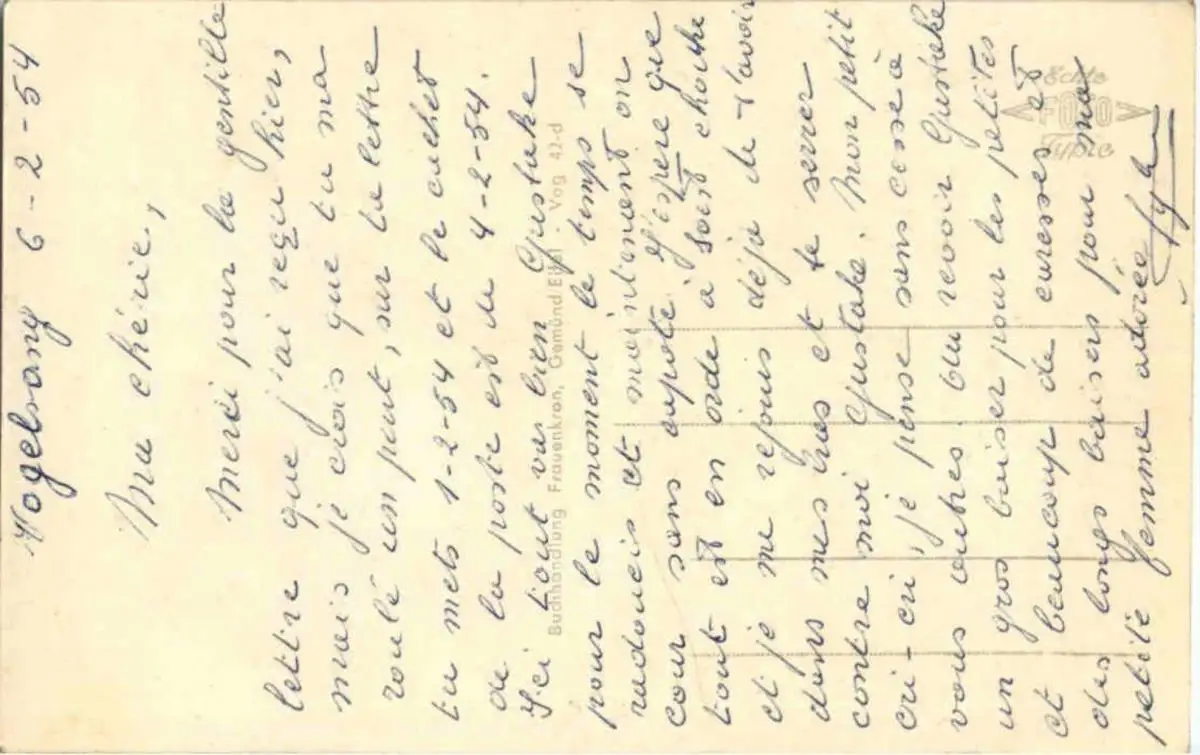 Vogelsang 6-2-54
Ma chérie,
Merci pour la gentille
lettre que j'ai reçu hier,
mais je crois que tu m'a
roulé un peut, sur ta lettre
tu mets 1-2-54 et le cachet
de la poste est du 4-2-54.
Ici tout va bien Gustake
pour le moment le temps se
radoucis et maintenant on
cour sans capote. J'espere que
tout est en orde à soit chotke
et je me rejouis déjà de t'avoir
dans mes bras et te serrer
contre moi Gustake. Mon petit
cri-cri je pense sans cesse à
vous autres. au revoir Gustake
un gros baiser pour les petites
et beaucoup de caresses et
des longs baisers pour ma
petite femme adorée
Buchhandlung Frauenkron, Gemünd Eifel Vog 42-d
Echte
FOTO